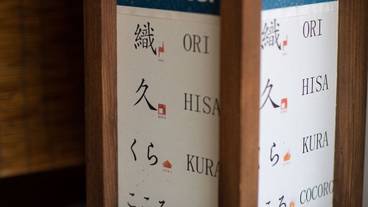 織 ORI
久 HISA
くら KURA
こころ
織 ORI
久 HISA
くら KURA
こころ COCORO